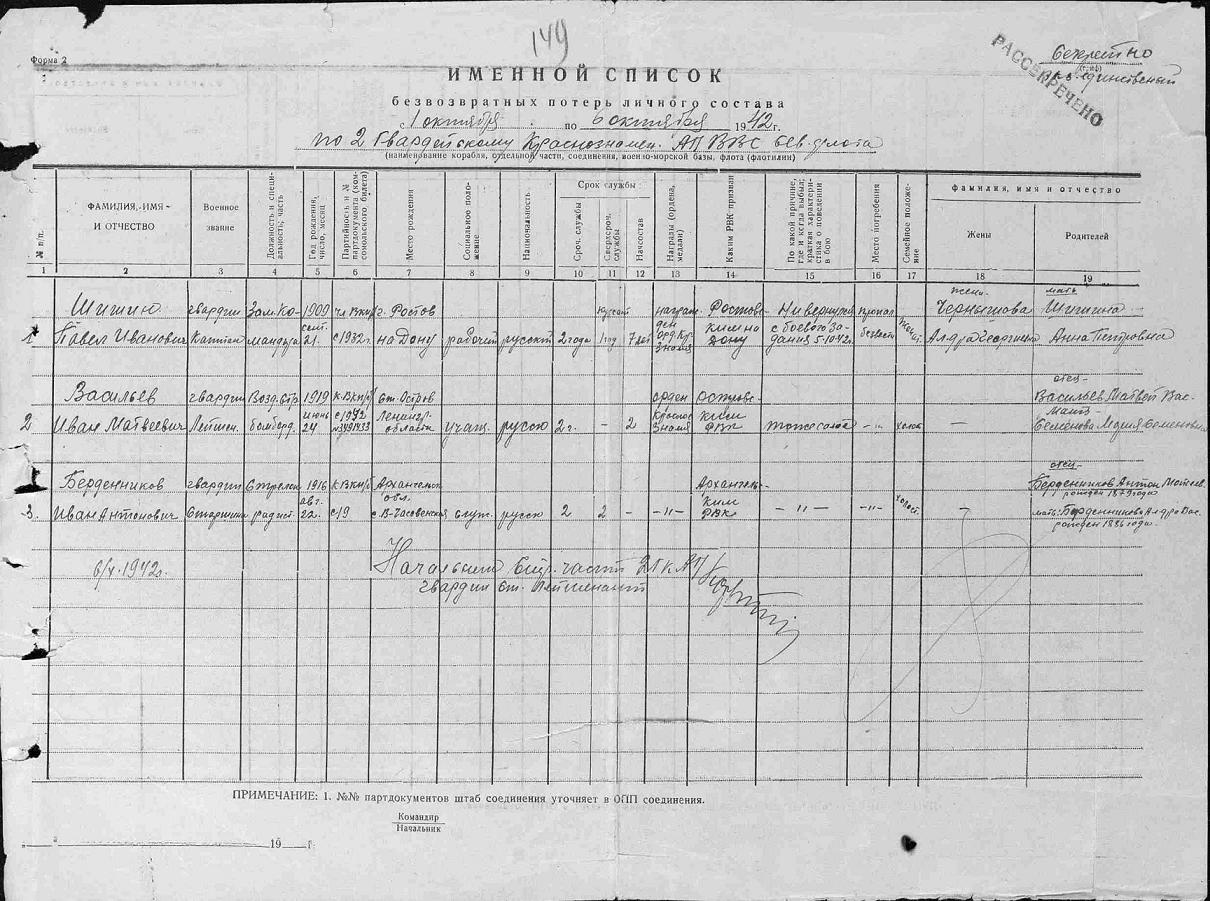 149
Форма 2
Секретно
РАССЕКРЕЧЕНО
экз. единственый
ИМЕННОЙ СПИСОК
безвозвратных потерь личного состава
с 1 октября по 6 октября 1942 г.
по 2 Гвардейскому Краснознамен. АП ВВС Сев. флота
(наименование корабля, отдельной части, соединения, военно-морской базы, флота (флотилии)
№ п/п.
ФАМИЛИЯ, ИМЯ И ОТЧЕСТВО
Военное звание
Должность и специальность; часть
Год рождения, число, месяц
Партийность и № партдокумента (комсомольского билета)
Место рождения
Социальное положение
Национальность
Срок службы
Сроч. службы
Сверхсроч. службы
Начсостав
Награды (ордена, медали)
Каким РВК призван
По какой причине, где и когда выбыл; краткая характеристика о поведении в бою
Место погребения
Семейное положение
фамилия, имя и отчество
Жены
Родителей
1 2 3 4 5 6 7 8 9 10 11 12 13 14 15 16 17 18 19
жена- мать
гвардии Зам. Ко- 1909 чл ВКП/б г. Ростов курсант награж- Ростовс- Не вернулся пропал Чернышова
1 Павел Иванович Капитан мандира сент. 21. с 1932 г. на Дону рабочий русский 2 года 1 год 7 лет ден орд. Кр. Знамя ким на Дону с боевого задания 5-10-42 г. безвести женат. Ал-дра Георгиевна Анна Петровна
отец-
Васильев гвардии Возд. стр. 1919 к ВКП/б ст. Остров орден Островс- Васильев Матвей Вас.
мать-
2 Иван Матвеевич Лейтен. бомбард. июнь 24 с 1942 Ленингр. области учащ. русск 2 г. – 2 Красное Знамя ким РВК тоже самое –"– холост – Семенова Мария Семеновна
отец-
Берденников гвардии Стрелок 1916 к ВКП/б Архангельск обл. Архангель- Берденников Антон Матвеев.
рожден 1879 года
3. Иван Антонович Старшина радист авг. 22. с 19 с В-Часовенская служ. русск 2 2 – –"– ким РВК –"– –"– холост. – мать: Берденникова Ал-дра Вас.
рожден 1886 года.
6/X-1942 г. Начальник стр. части 2 ГК АП
гвардии ст. Лейтенант
ПРИМЕЧАНИЕ: 1. №№ партдокументов штаб соединения уточняет в ОПП соединения.
Командир
Начальник
" " 19 г.